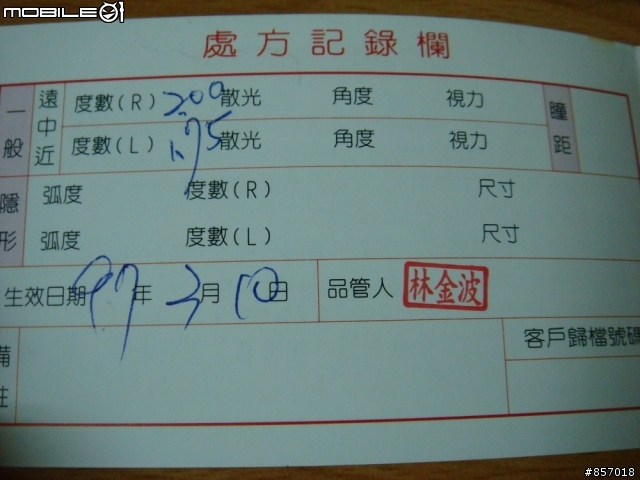 MOBILE01
處方記錄欄
一般 遠中近 度數(R) 2.00 散光 角度 視力 瞳距
度數(L) 1.75 散光 角度 視力
隱形 弧度 度數(R) 尺寸
弧度 度數(L) 尺寸
生效日期 97年 3月 10日 品管人 林金波
備註 客戶歸檔號碼
#857018